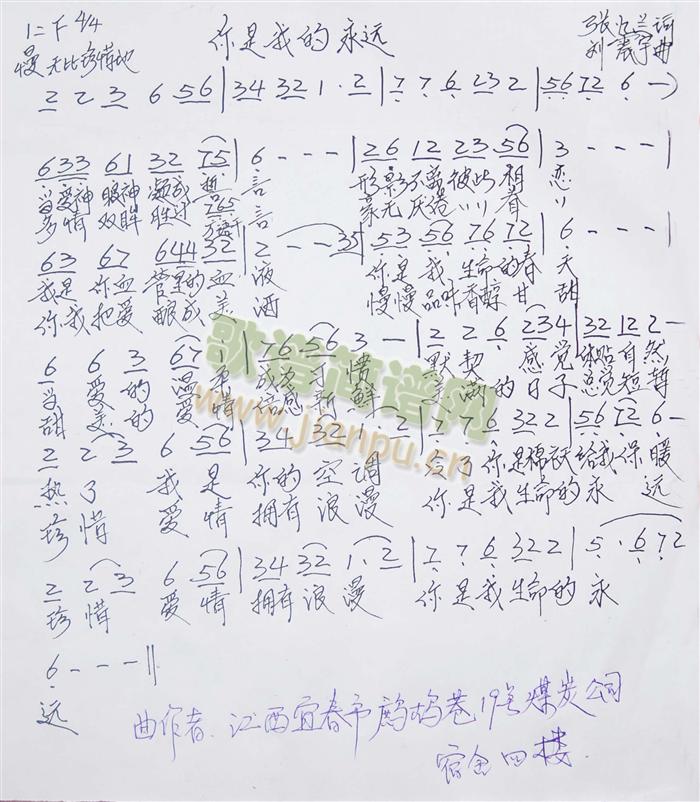 1=F 4/4 你是我的永远 张 兰词
慢 无比珍惜地 刘 曲
2 2 3 6 56 | 34 32 1 · 2 | 7 7 6 23 2 | 56 72 6 —)
633 61 32 75 | 6 - - - | 26 12 23 56 | 3 - - - |
当爱神 眼神 凝成 言 形影不离彼此 相 恋
多情 双眸 胜过 765 言 毫无厌倦 看
63 67 644 32 | 2 - - 35 | 53 56 76 72 | 6 - - - |
我是 你血 管里的 血 液 你是 我 生命的春 天
你我把爱 酿成 美 酒 慢慢品味香醇 甘 甜
6 6 3 67 | 76 56 3 — | 2 2 6 234 | 32 12 2 —
当 爱 的 温 成为 习 惯 默 契 感觉 体贴自然
甜 美 的 爱 情 感 新 鲜 满 的 日子 总觉短暂
2 2 3 6 56 | 34 32 1 · 2 | 7 7 6 32 2 | 56 72 6 —
热 了 我 是 你的 空 调 冷了 你是棉袄给我保 暖
珍 惜 爱 情 拥有 浪 漫 你是我生命的永 远
2 2 3 6 56 | 34 32 1 · 2 | 7 7 6 32 2 | 5 · 6 72
珍 惜 爱 情 拥有 浪 漫 你是我生命的 永
6 - - - ||
远
歌谱简谱网
www.jianpu.cn
曲作者：江西宜春市鹧鸪巷19号煤炭公司
宿舍四楼